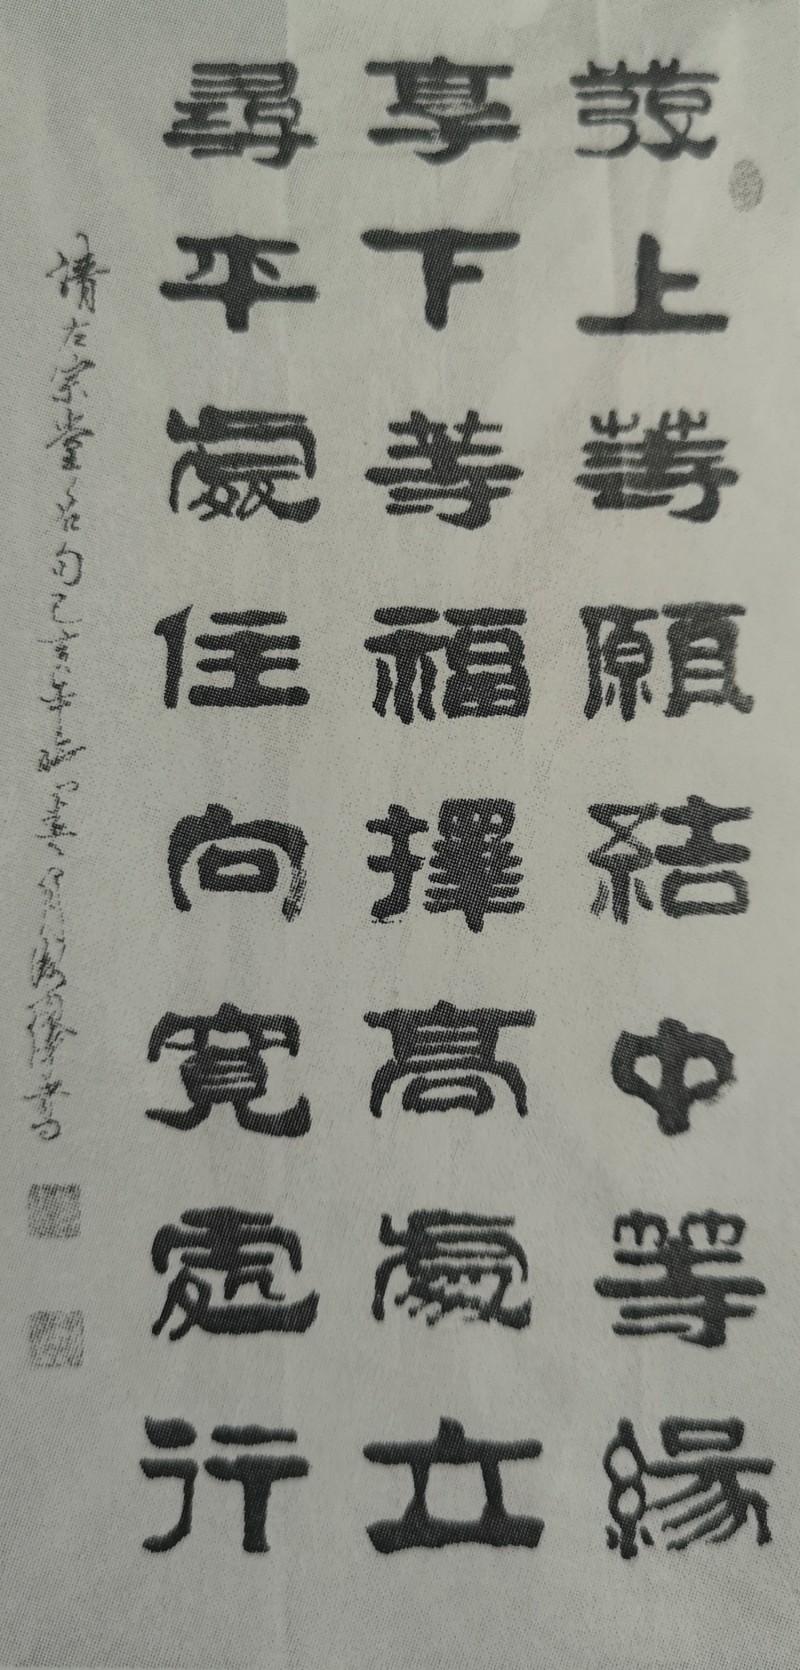 發上等願結中等緣
享下等福擇高處立
尋平處住向寬處行
清左宗堂名句己亥年
書